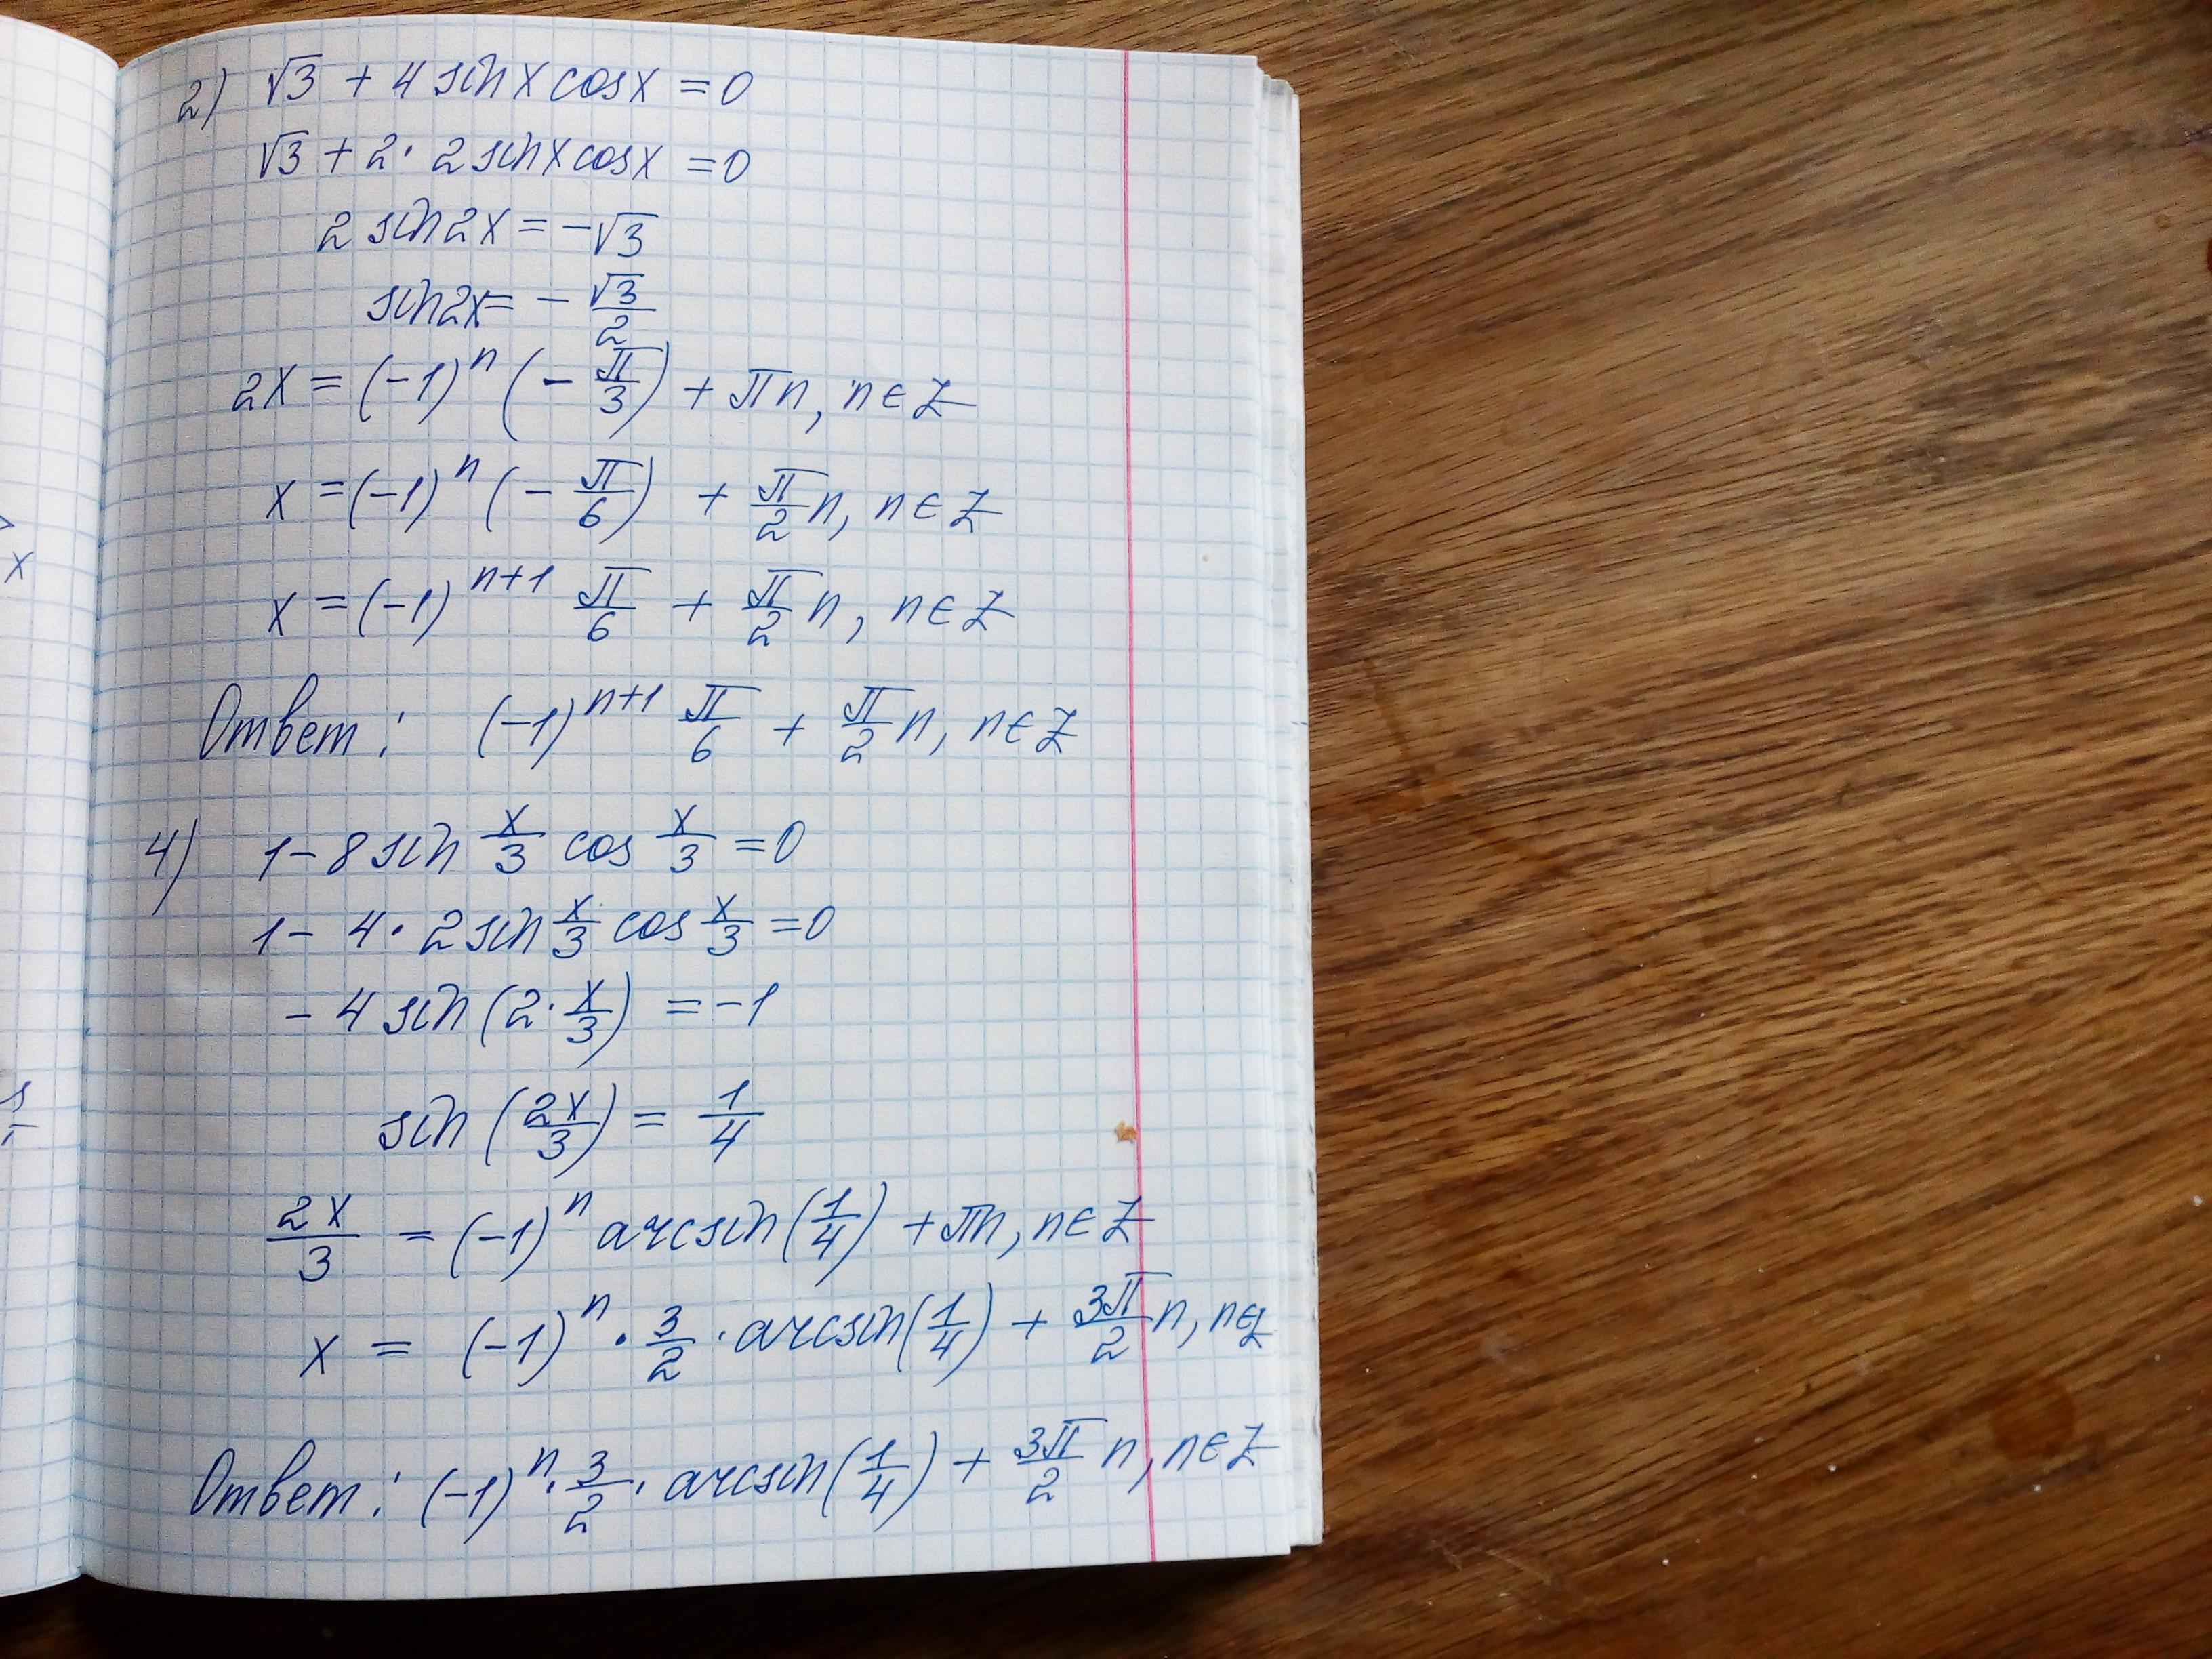 2) √3 + 4 sin x cos x = 0
√3 + 2 · 2 sin x cos x = 0
2 sin 2x = -√3
sin 2x = - √3/2
2x = (-1)^n (- π/3) + πn, n ∈ Z
x = (-1)^n (- π/6) + π/2 n, n ∈ Z
x = (-1)^(n+1) π/6 + π/2 n, n ∈ Z
Ответ: (-1)^(n+1) π/6 + π/2 n, n ∈ Z
4) 1 - 8 sin x/3 cos x/3 = 0
1 - 4 · 2 sin x/3 cos x/3 = 0
- 4 sin (2 · x/3) = -1
sin (2x/3) = 1/4
2x/3 = (-1)^n arcsin(1/4) + πn, n ∈ Z
x = (-1)^n · 3/2 · arcsin(1/4) + 3π/2 n, n ∈ Z
Ответ: (-1)^n · 3/2 · arcsin(1/4) + 3π/2 n, n ∈ Z
x